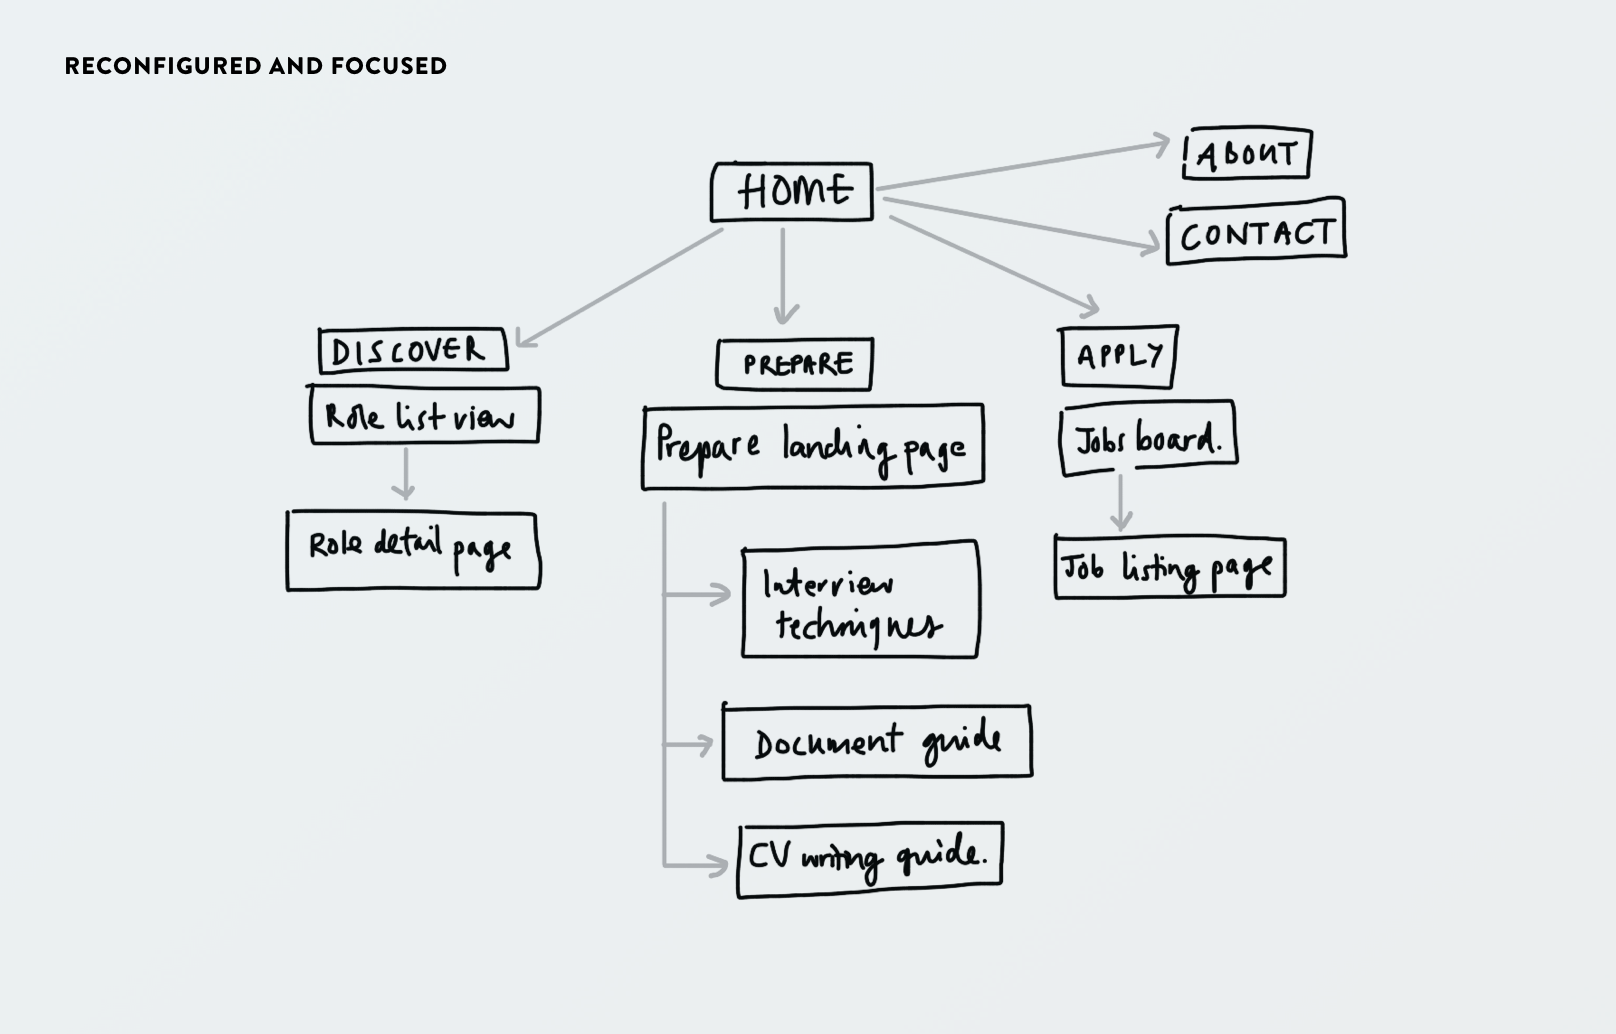 RECONFIGURED AND FOCUSED
HOME
ABOUT
CONTACT
DISCOVER
Role list view
Role detail page
PREPARE
Prepare landing page
Interview
techniques
Document guide
CV writing guide.
APPLY
Jobs board.
Job listing page